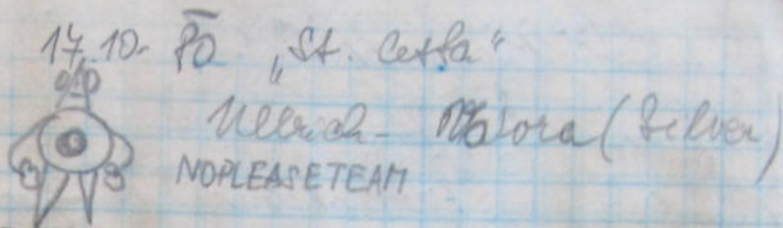 17.10. PO „St. Cesta“
Ullrich - Mora (Silver)
NOPLEASETEAM